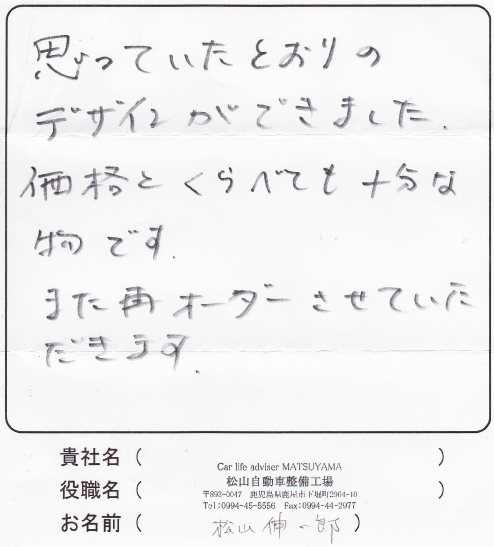 思っていたとおりの
デザインができました.
価格とくらべても十分な
物です.
また再オーダーさせていた
だきます.
貴社名( Car life adviser MATSUYAMA )
役職名( 松山自動車整備工場 )
〒893-0047 鹿児島県鹿屋市下堀町2964-10
Tel:0994-45-5556 Fax:0994-44-2977
お名前( 松山伸一郎 )